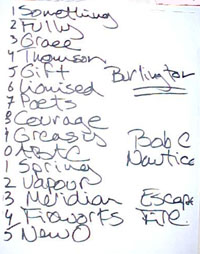 1 Something
2 Fully
3 Grace
4 Thomson
5 Gift
Burlington
6 Lionised
7 Poets
8 Courage
9 Greasy
Bob C
0 ABAC
Nautica
1 Spring
2 Vapour
3 Meridian Escape
4 Fireworks Fire
5 New O